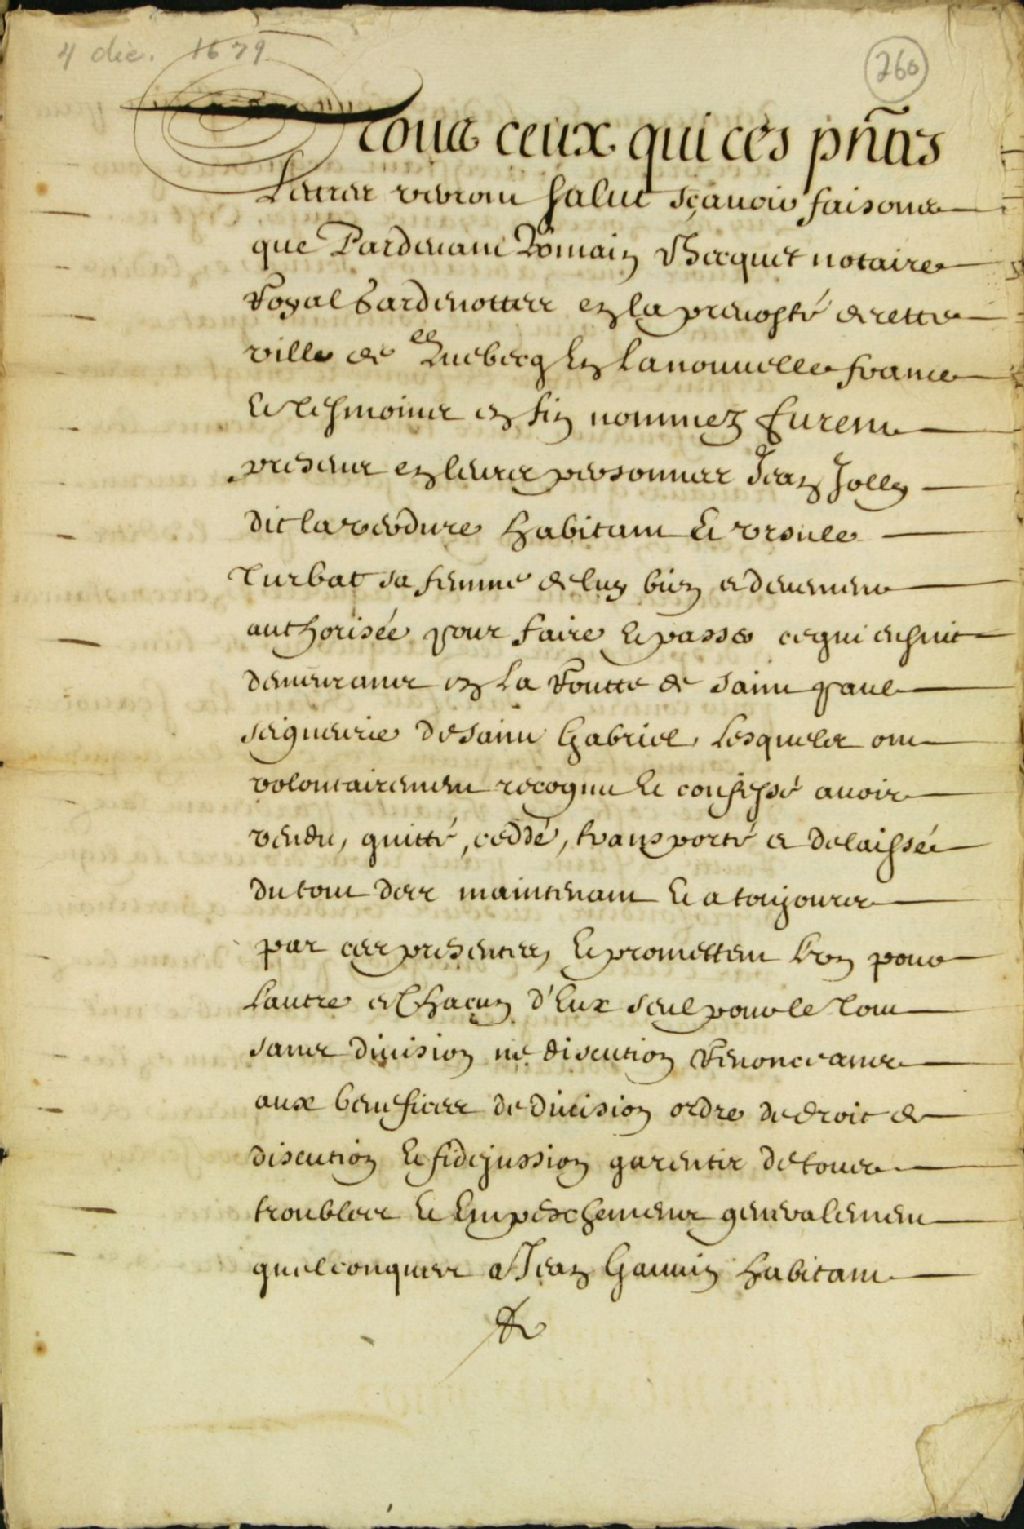 4 dec. 1679
260
A tous ceux qui ces pñtes
Lettres verront Salut sçauoir faisons
que Pardeuant Romain Becquet notaire
Royal Gardenottes en la preuosté de cette
ville de Quebecq En La nouuelle france
Et tesmoins en fin nommez furent
presens en leurs personnes Jean Jolly
dit la verdure habitant Et vrsule
Turbat sa femme de luy bien et deuement
authorisée pour faire Et passer ce qui ensuit
demeurants en La Routte de saint paul
seigneurie de saint Gabriel, Lesquels ont
volontairement recognu Et confessé auoir
vendu, quitté, ceddé, transporté et delaissé
du tout des maintenant Et a toujours
par ces presentes, Et promettent L'vn pour
Lautre et Chacun d'Eux seul pour le Tout
sans diuision ne discution Renonceants
aux benefices de diuision ordre de droit de
discution Et fidejussion garentir de tous
troubles Et Empeschements generalement
quelconques a Jean Gauuin habitant